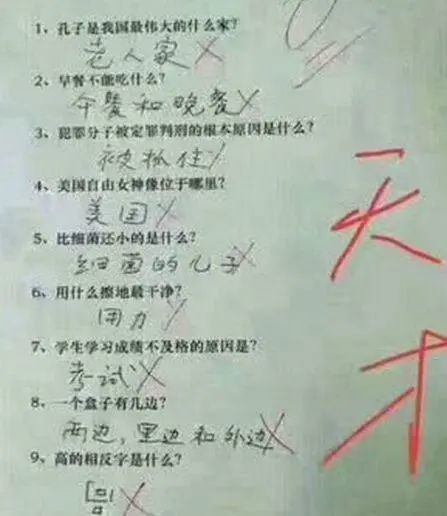 1、孔子是我国最伟大的什么家?
老人家
2、早餐不能吃什么?
午餐和晚餐
3、犯罪分子被定罪判刑的根本原因是什么?
被抓住
4、美国自由女神像位于哪里?
美国
5、比细菌还小的是什么?
细菌的儿子
6、用什么擦地最干净?
用力
7、学生学习成绩不及格的原因是?
考试
8、一个盒子有几边?
两边，里边和外边
9、高的相反字是什么?
天才